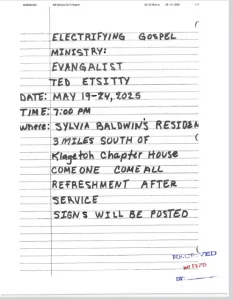 ELECTRIFYING GOSPEL
MINISTRY:
EVANGALIST
TED ETSITTY
DATE: MAY 19-24, 2025
TIME: 7:00 PM
Where: SYLVIA BALDWIN'S RESIDEN
3 MILES SOUTH OF
Klagetoh Chapter House
COME ONE COME ALL
REFRESHMENT AFTER
SERVICE
SIGNS WILL BE POSTED
RECEIVED
BY: